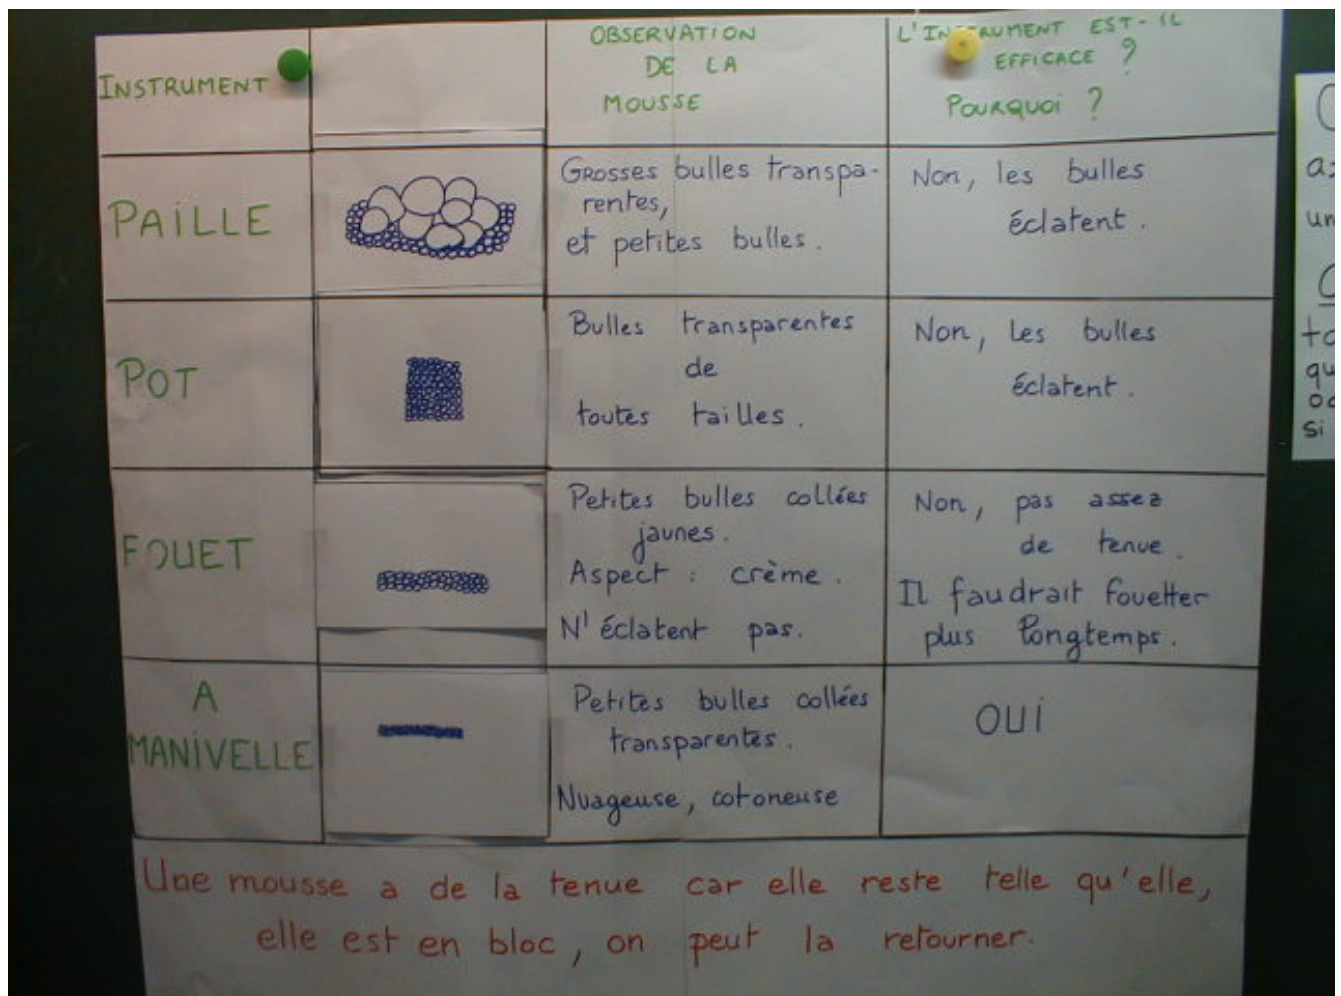 INSTRUMENT
OBSERVATION
DE LA
MOUSSE
EST-IL
EFFICACE ?
POURQUOI ?
PAILLE
Grosses bulles transpa-
rentes,
et petites bulles.
Non, les bulles
éclatent.
POT
Bulles transparentes
de
toutes tailles.
Non, les bulles
éclatent.
FOUET
Petites bulles collées
jaunes.
Aspect : crème.
N'éclatent pas.
Non, pas assez
de tenue.
Il faudrait fouetter
plus longtemps.
A
MANIVELLE
Petites bulles collées
transparentes.
Nuageuse, cotoneuse
OUI
Une mousse a de la tenue car elle reste telle qu'elle,
elle est en bloc, on peut la retourner.
si